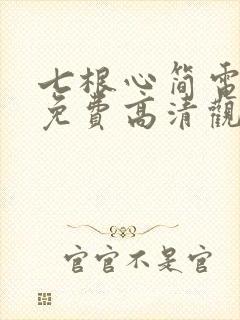 七根心简電
免費高清觀
官官不是官